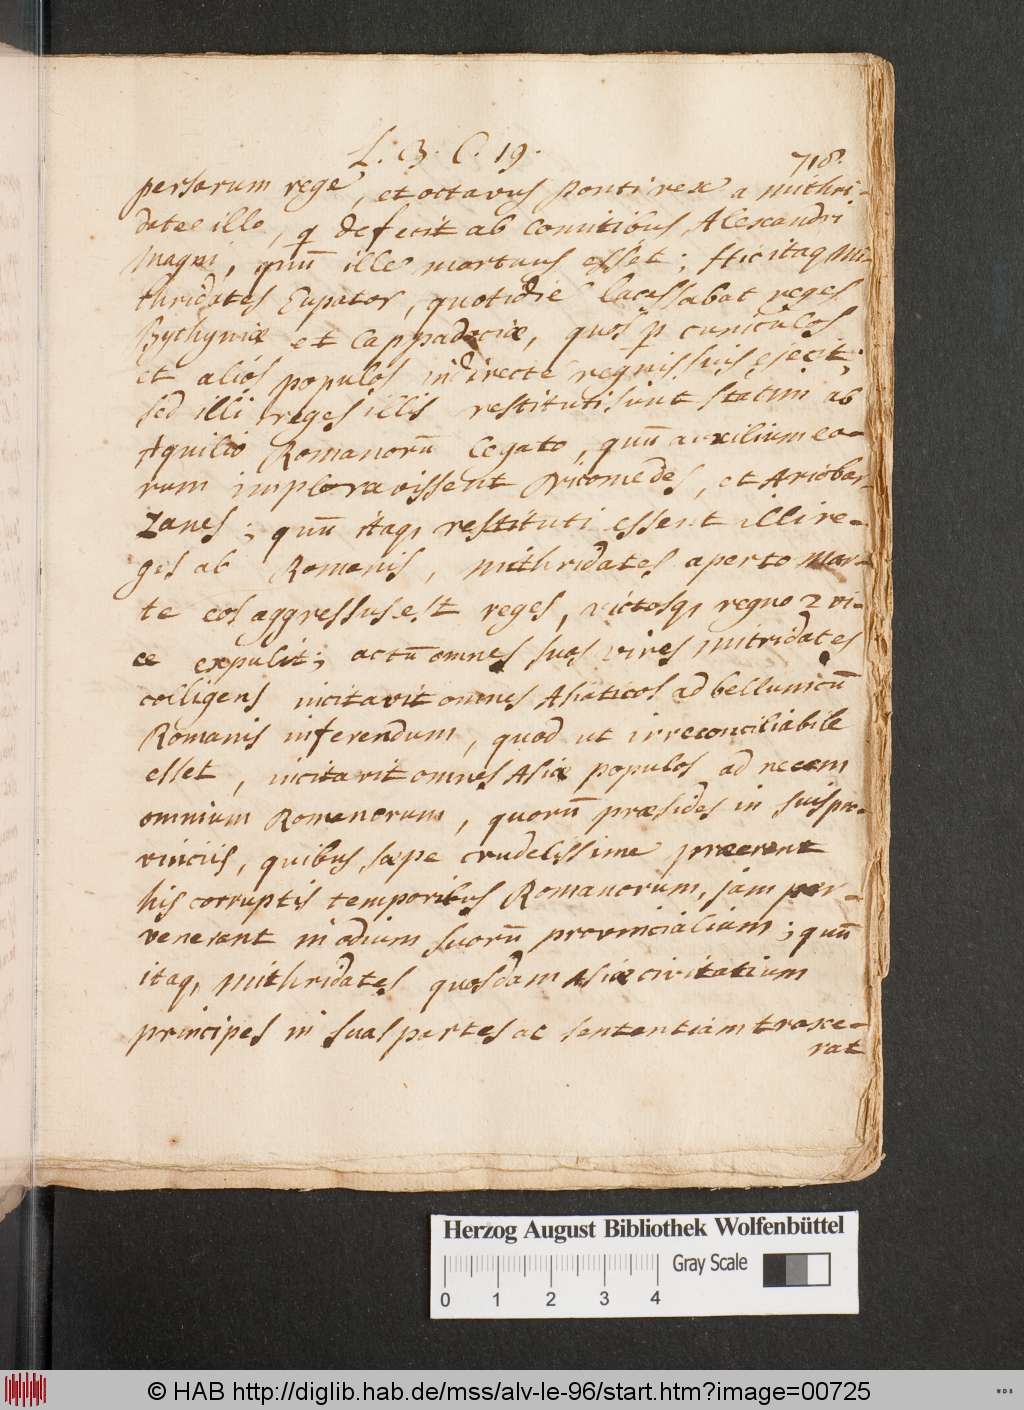 L. 3. C. 19.
718.
persarum rege, et octavus ponti rex a mithri-
date illo, q defecit ab comitibus Alexandri
magni, quū ille mortuus esset; Hic itaq Mi-
thridates Eupator, quotidie lacessabat reges
Bythyniæ et Cappadociæ, quos p cuniculos
et alios populos indirecte regnis suis ejecit;
sed illi reges illis restituti sunt statim ab
Aquilio Romanorū legato, quū auxilium eo-
rum imploravissent Nicomedes, et Ariobar-
zanes; quū itaq, restituti essent illi re-
ges ab Romanis, mithridates aperto mar-
te eos aggressus est reges, victosq, regno 2 vi-
ce expulit; actū omnes suas vires mitridates
colligens incitavit omnes Asiaticos ad bellum cū
Romanis inferendum, quod ut irreconciliabile
esset, incitavit omnes Asiæ populos ad necem
omnium Romanorum, quorū præsides in suis pro-
vinciis, quibus sæpe crudelissime præerant
his corruptis temporibus Romanorum, jam per-
venerant in odium suorū provincialium; quū
itaq, mithridates quosdam Asiæ civitatium
principes in suas partes ac sententiam traxe-
rat
Herzog August Bibliothek Wolfenbüttel
Gray Scale
0 1 2 3 4
© HAB http://diglib.hab.de/mss/alv-le-96/start.htm?image=00725